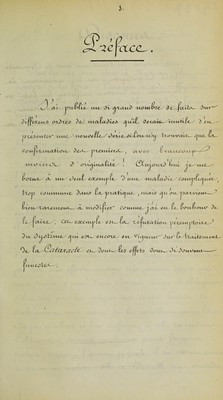 3.
Préface.
J'ai publié un si grand nombre de faits sur
différens ordres de maladies qu'il serait inutile d'en
présenter une nouvelle série si l'on n'y trouvait que la
confirmation des premiers, avec beaucoup
moins d'originalité ! Aujourd'hui je me
borne à un seul exemple d'une maladie compliquée,
trop commune dans la pratique, mais qu'on parvient
bien rarement à modifier comme j'ai eu le bonheur de
le faire. cet exemple est la réfutation péremptoire
du système qui est encore en vigueur sur le traitement
de la Cataracte et dont les effets sont si souvent
funestes.